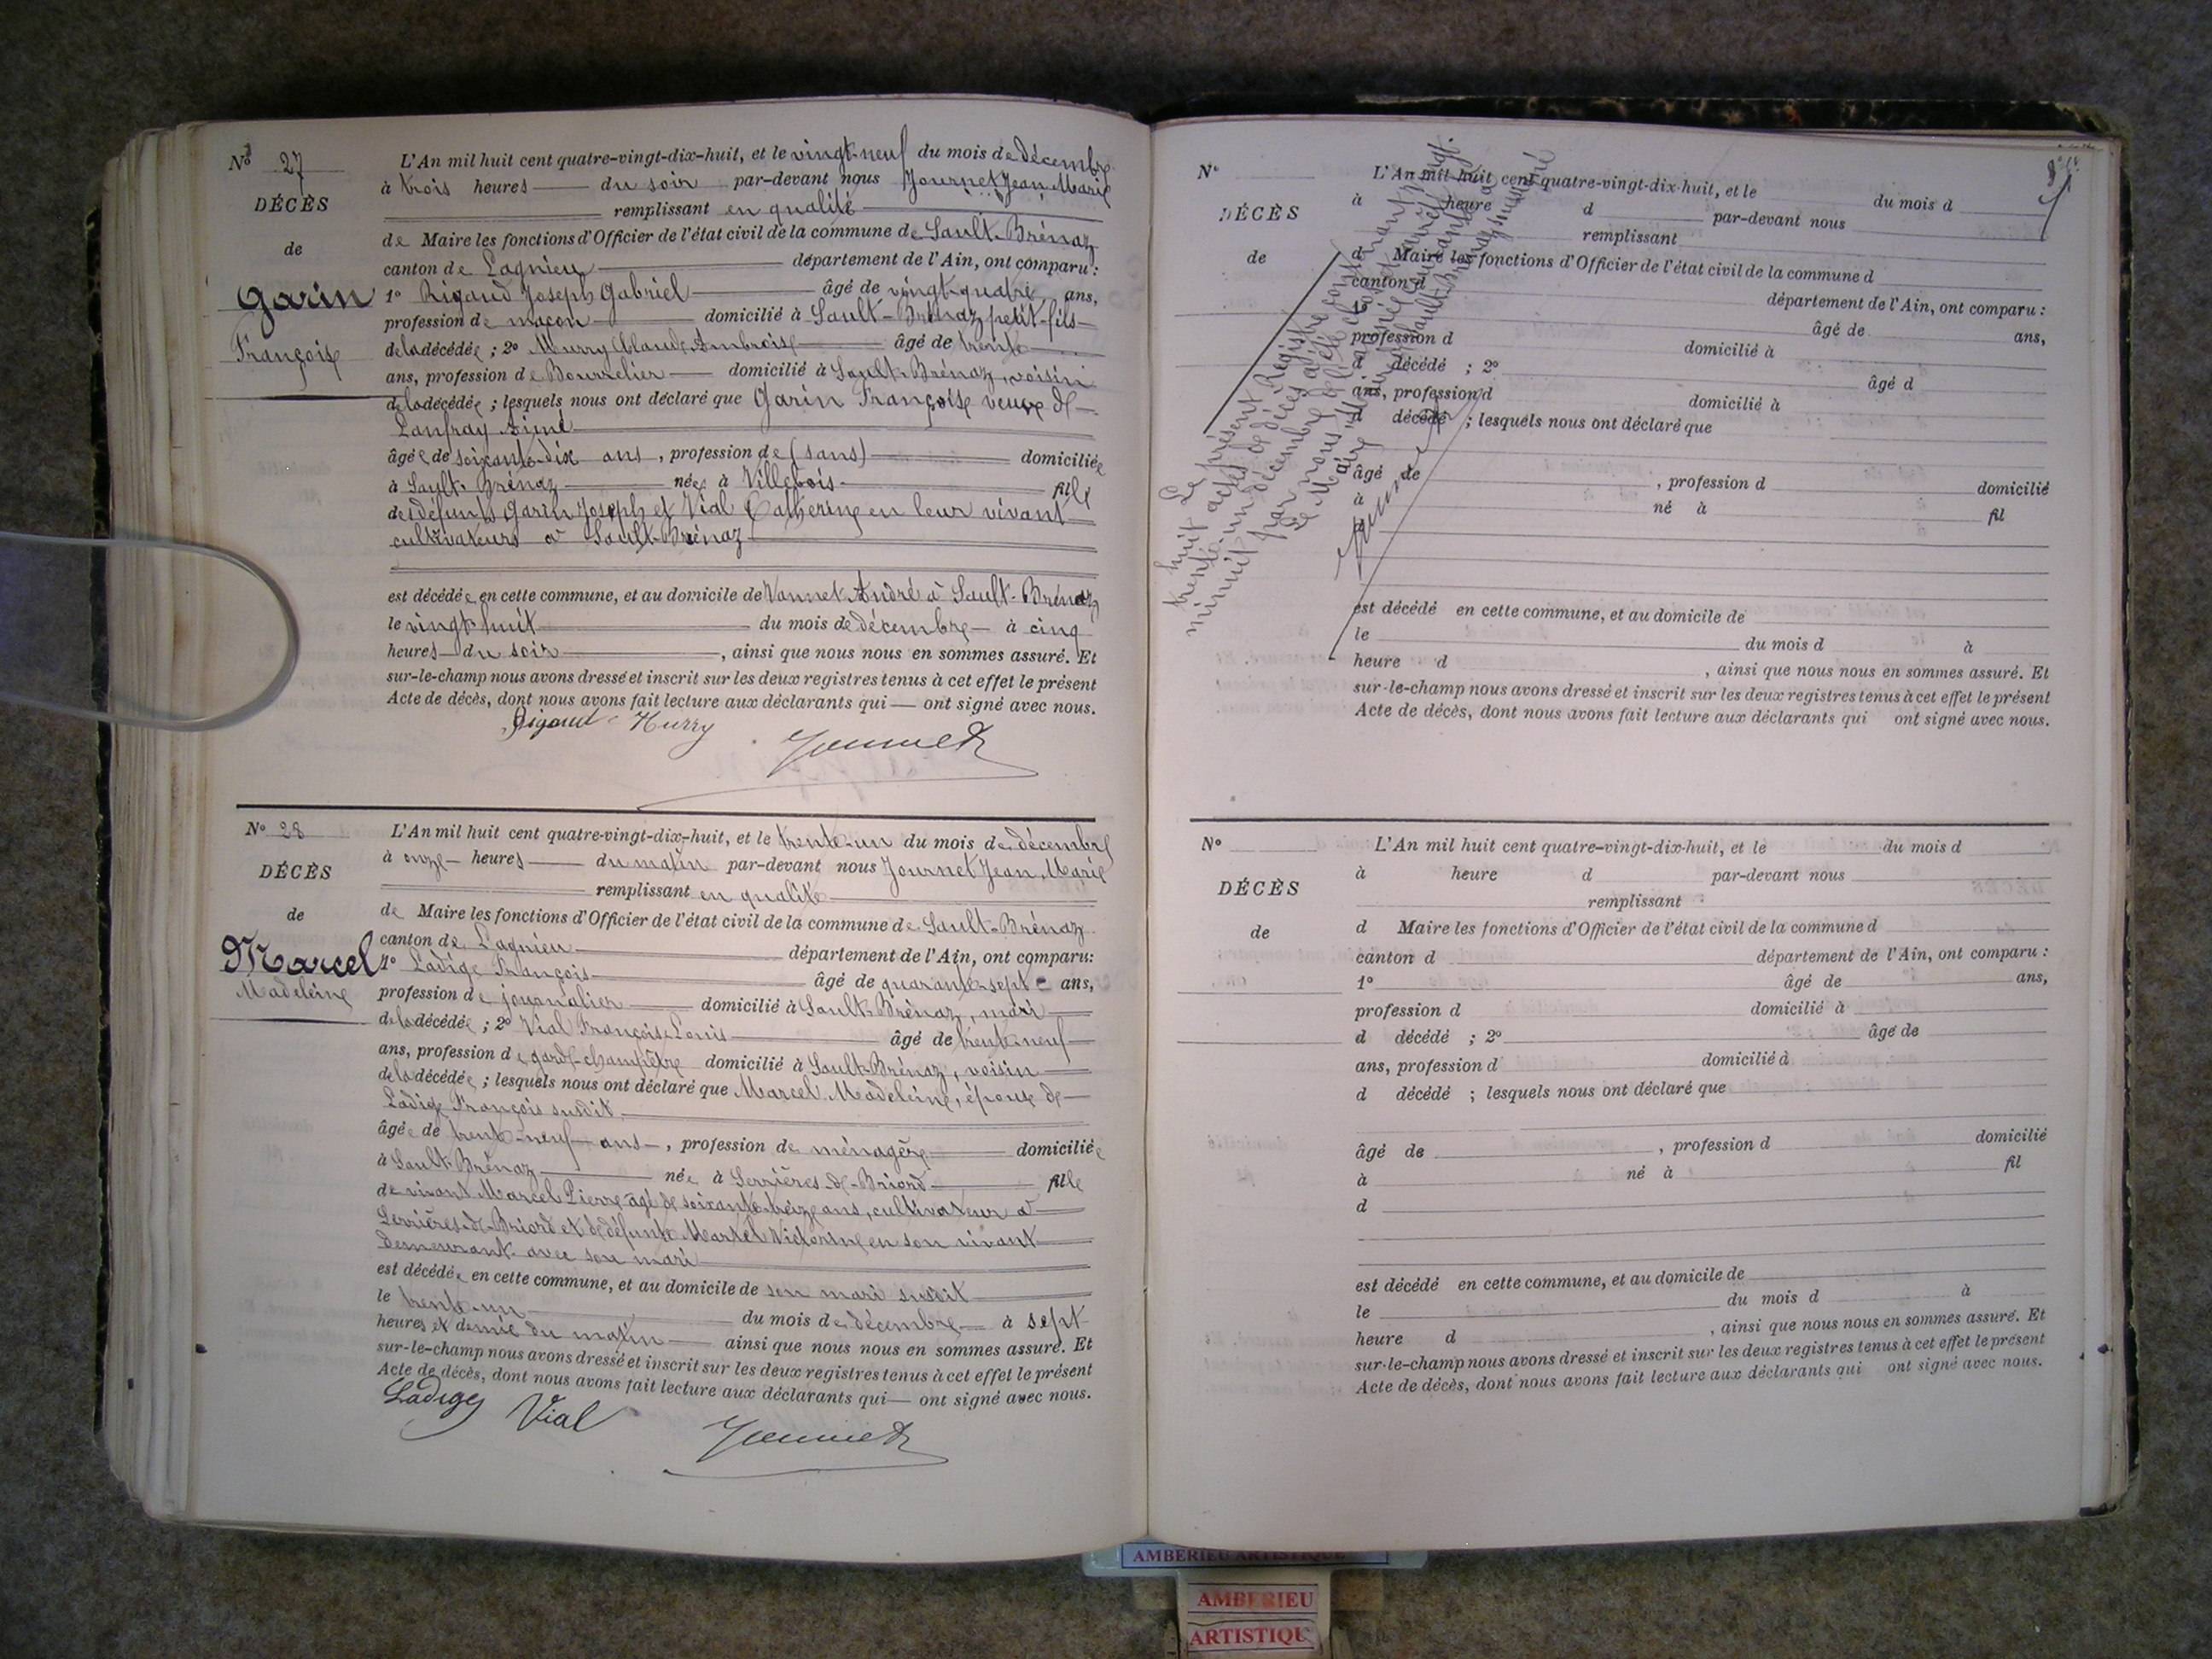 No 27
DÉCÈS
de
Garin
Françoise
L'An mil huit cent quatre-vingt-dix-huit, et le vingt-neuf du mois de décembre
à trois heures du soir par-devant nous Journet Jean Marie
remplissant en qualité
de Maire les fonctions d'Officier de l'état civil de la commune de Sault-Brénaz
canton de Lagnieu département de l'Ain, ont comparu:
1º Rigaud Joseph Gabriel âgé de vingt-quatre ans,
profession de maçon domicilié à Sault-Brénaz petit-fils
de la décédée ; 2º Murry Claude Ambroise âgé de trente
ans, profession de Bourrelier domicilié à Sault-Brénaz, voisin
de la décédée ; lesquels nous ont déclaré que Garin Françoise veuve de
Lanfray Aimé
âgée de soixante-dix ans, profession de (sans) domiciliée
à Sault-Brénaz née à Villebois fille
de défunts Garin Joseph et Vial Catherine en leur vivant
cultivateurs à Sault-Brénaz
est décédée en cette commune, et au domicile de Vannet André à Sault-Brénaz
le vingt-huit du mois de décembre à cinq
heures du soir, ainsi que nous nous en sommes assuré. Et
sur-le-champ nous avons dressé et inscrit sur les deux registres tenus à cet effet le présent
Acte de décès, dont nous avons fait lecture aux déclarants qui ont signé avec nous.
Rigaud Murry Journet
No 28
DÉCÈS
de
Marcel
Madeleine
L'An mil huit cent quatre-vingt-dix-huit, et le trente-un du mois de décembre
à onze heures du matin par-devant nous Journet Jean Marie
remplissant en qualité
de Maire les fonctions d'Officier de l'état civil de la commune de Sault-Brénaz
canton de Lagnieu département de l'Ain, ont comparu:
1º Ladige François âgé de quarante-sept ans,
profession de journalier domicilié à Sault-Brénaz, mari
de la décédée ; 2º Vial François Louis âgé de trente-neuf
ans, profession de garde-champêtre domicilié à Sault-Brénaz, voisin
de la décédée ; lesquels nous ont déclaré que Marcel Madeleine, épouse de
Ladige François susdit
âgée de trente-neuf ans, profession de ménagère domiciliée
à Sault-Brénaz née à Serrières-de-Briord fille
de vivant Marcel Pierre âgé de soixante-treize ans, cultivateur à
Serrières-de-Briord et de défunte Martel Victorine en son vivant
demeurant avec son mari
est décédée en cette commune, et au domicile de son mari susdit
le trente-un du mois de décembre à sept
heures et demie du matin ainsi que nous nous en sommes assuré. Et
sur-le-champ nous avons dressé et inscrit sur les deux registres tenus à cet effet le présent
Acte de décès, dont nous avons fait lecture aux déclarants qui ont signé avec nous.
Ladige Vial Journet
No
DÉCÈS
de
L'An mil huit cent quatre-vingt-dix-huit, et le du mois d
à heure d par-devant nous
remplissant
d Maire les fonctions d'Officier de l'état civil de la commune d
canton d département de l'Ain, ont comparu :
1º âgé de ans,
profession d domicilié à
d décédé ; 2º âgé d
ans, profession d domicilié à
d décédé ; lesquels nous ont déclaré que
âgé de , profession d domicilié
à né à fil
d
est décédé en cette commune, et au domicile de
le du mois d à
heure d , ainsi que nous nous en sommes assuré. Et
sur-le-champ nous avons dressé et inscrit sur les deux registres tenus à cet effet le présent
Acte de décès, dont nous avons fait lecture aux déclarants qui ont signé avec nous.
Le présent Registre contenant vingt
huit actes de décès a été clos et arrêté le
trente-un décembre
minuit par nous Maire
Le Maire
Journet
No
DÉCÈS
de
L'An mil huit cent quatre-vingt-dix-huit, et le du mois d
à heure d par-devant nous
remplissant
d Maire les fonctions d'Officier de l'état civil de la commune d
canton d département de l'Ain, ont comparu :
1º âgé de ans,
profession d domicilié à
d décédé ; 2º âgé de
ans, profession d domicilié à
d décédé ; lesquels nous ont déclaré que
âgé de , profession d domicilié
à né à fil
d
est décédé en cette commune, et au domicile de
le du mois d à
heure d , ainsi que nous nous en sommes assuré. Et
sur-le-champ nous avons dressé et inscrit sur les deux registres tenus à cet effet le présent
Acte de décès, dont nous avons fait lecture aux déclarants qui ont signé avec nous.
AMBERIEU ARTISTIQUE
AMBERIEU
ARTISTIQU